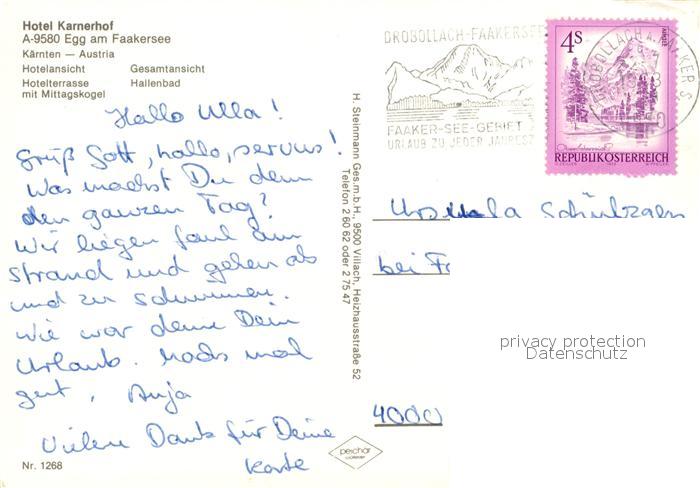 Hotel Karnerhof
A-9580 Egg am Faakersee
Kärnten — Austria
Hotelansicht Gesamtansicht
Hotelterrasse Hallenbad
mit Mittagskogel
Hallo Ulla!
Grüß Gott, hallo, servus!
Was machst Du denn
den ganzen Tag?
Wir liegen faul am
Strand und gehen ab
und zu schwimmen.
Wie war denn Dein
Urlaub. Machs mal
gut, Anja
Vielen Dank für Deine
Karte
Nr. 1268
H. Steinmann Ges.m.b.H., 9500 Villach, Heizhausstraße 52
Telefon 2 60 62 oder 2 75 47
peichar
DROBOLLACH-FAAKERSEE
FAAKER-SEE-GEBIET
URLAUB ZU JEDER JAHRESZ
4S
REPUBLIK ÖSTERREICH
DROBOLLACH A. FAAKER S.
Ursula
bei Fr
4000
privacy protection
Datenschutz